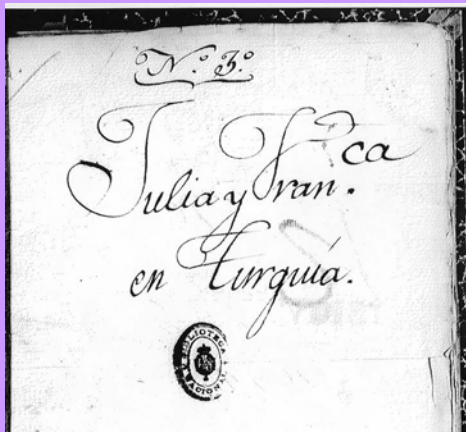 N.º 3.º
Julia y Fran.ca
en Turquía.
BIBLIOTECA
NACIONAL